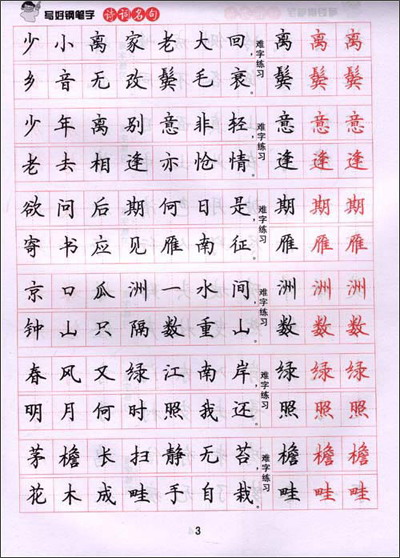 写好钢笔字 诗词名句
少小离家老大回, 难字练习 离离离
乡音无改鬓毛衰。 鬓鬓鬓
少年离别意非轻, 难字练习 意意意
老去相逢亦怆情。 逢逢逢
欲问后期何日是, 难字练习 期期期
寄书应见雁南征。 雁雁雁
京口瓜洲一水间, 难字练习 洲洲洲
钟山只隔数重山。 数数数
春风又绿江南岸, 难字练习 绿绿绿
明月何时照我还。 照照照
茅檐长扫静无苔, 难字练习 檐檐檐
花木成畦手自栽。 畦畦畦
3